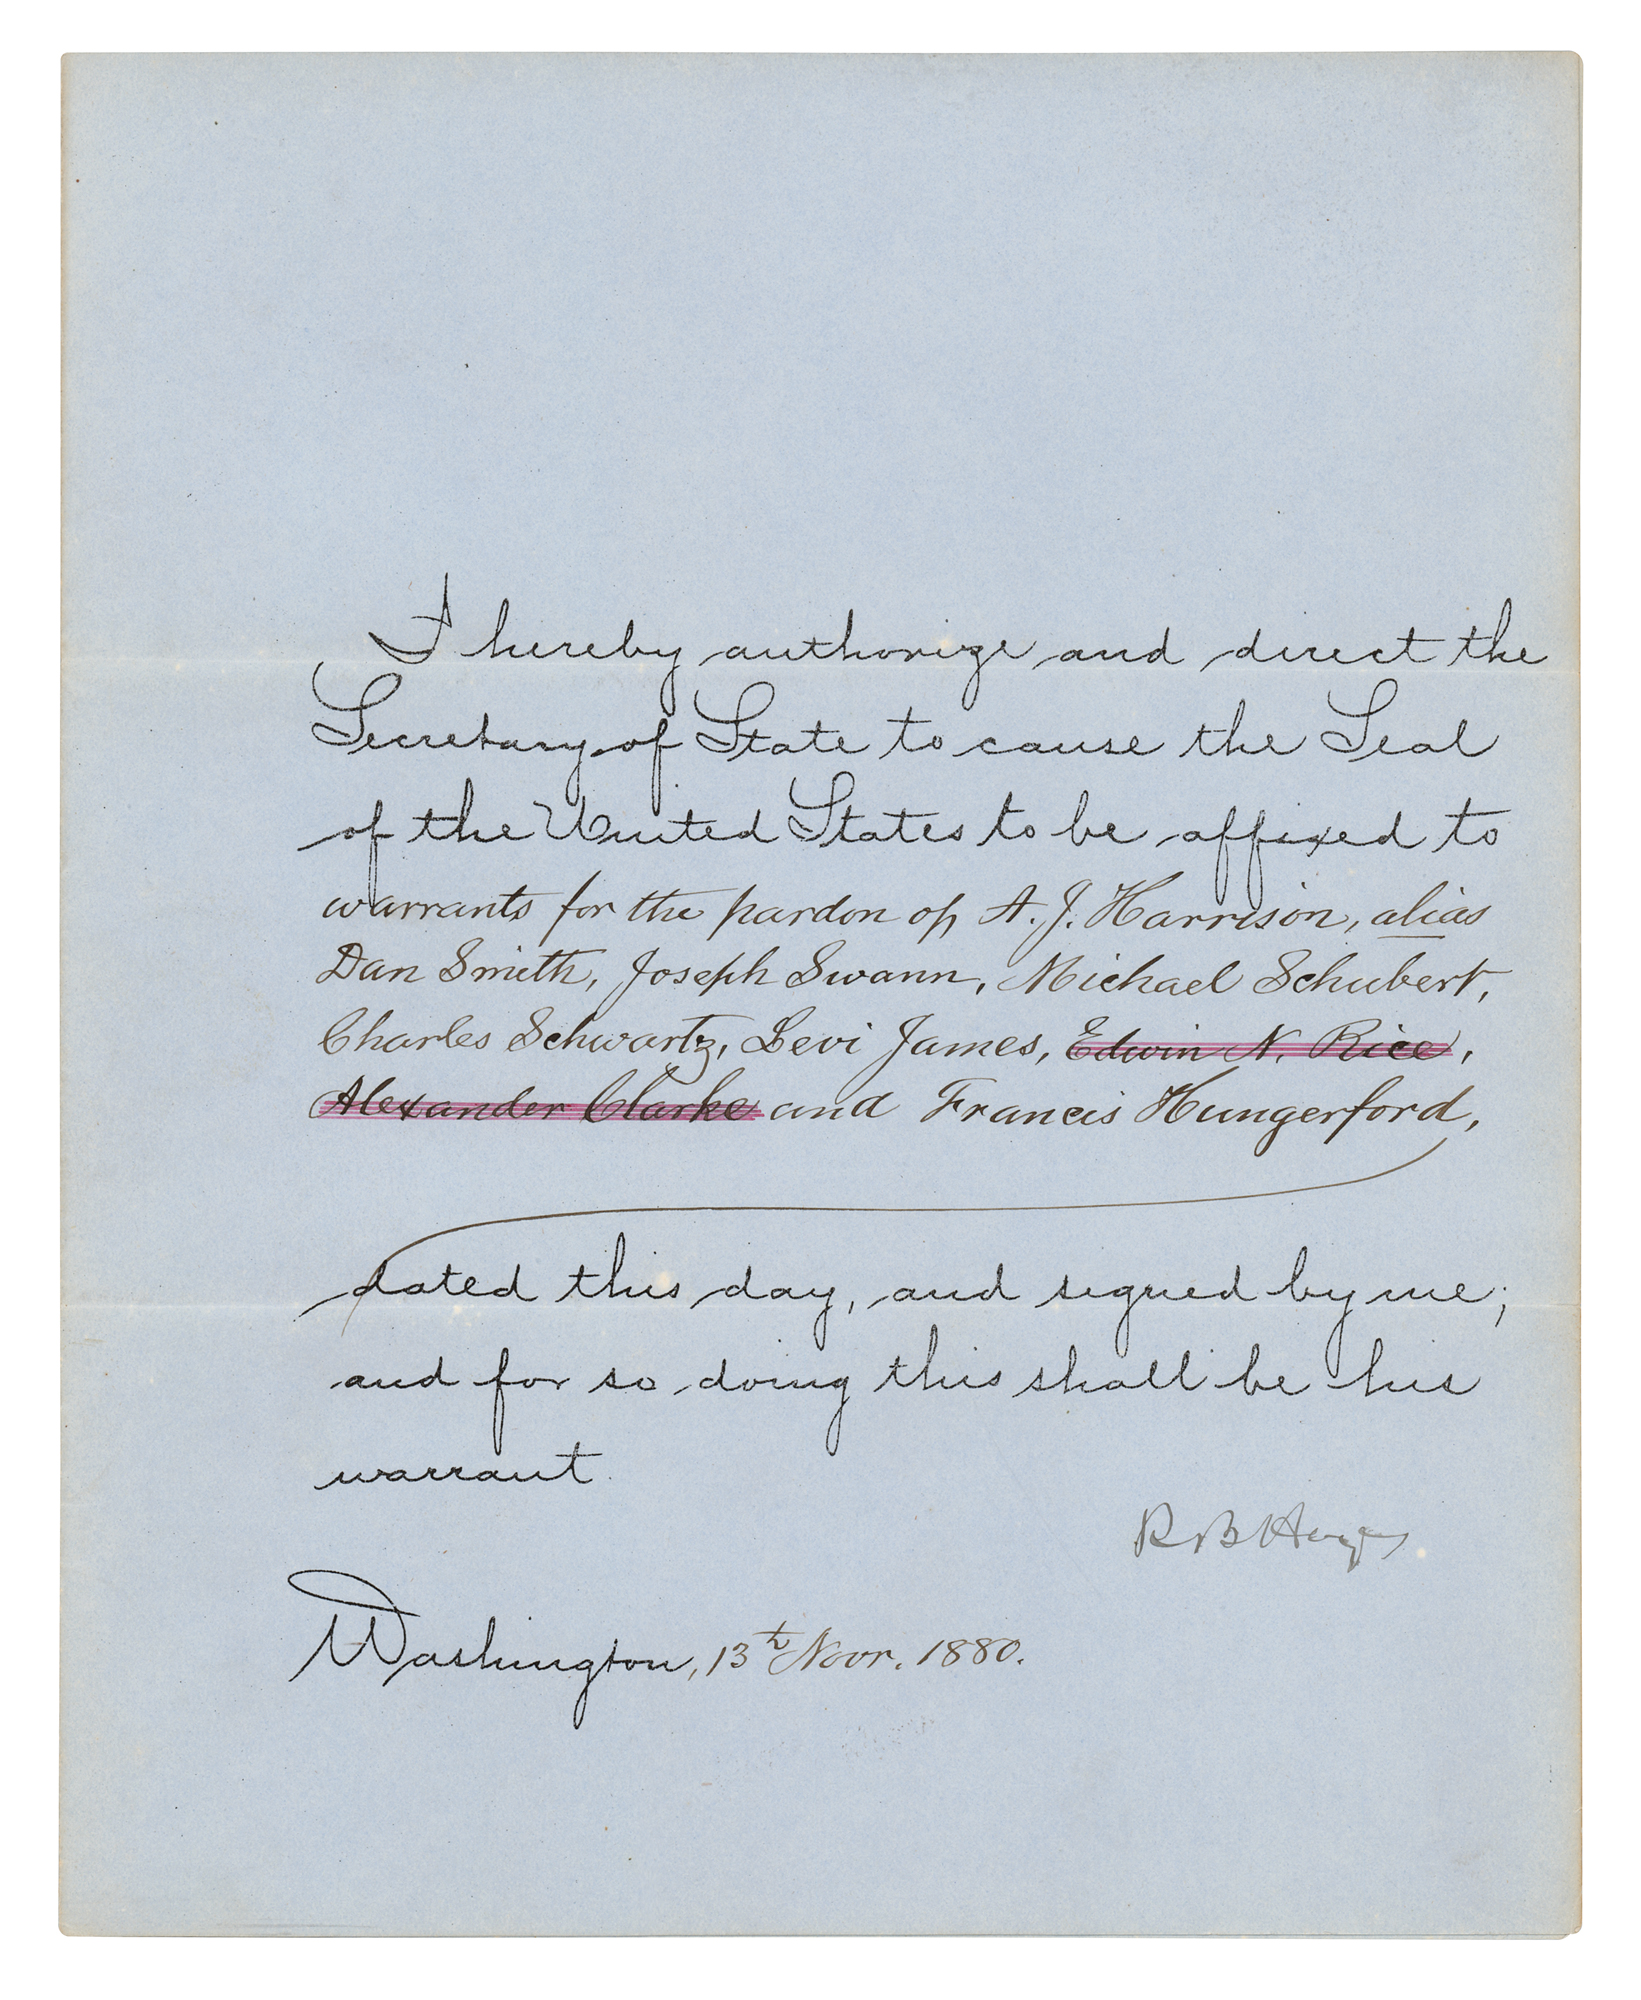 I hereby authorize and direct the
Secretary of State to cause the Seal
of the United States to be affixed to
warrants for the pardon of A. J. Harrison, alias
Dan Smith, Joseph Swann, Michael Schubert,
Charles Schwartz, Levi James, Edwin N. Rice,
Alexander Clarke and Francis Hungerford,
dated this day, and signed by me;
and for so doing this shall be his
warrant.
R B Hayes
Washington, 13th Novr. 1880.